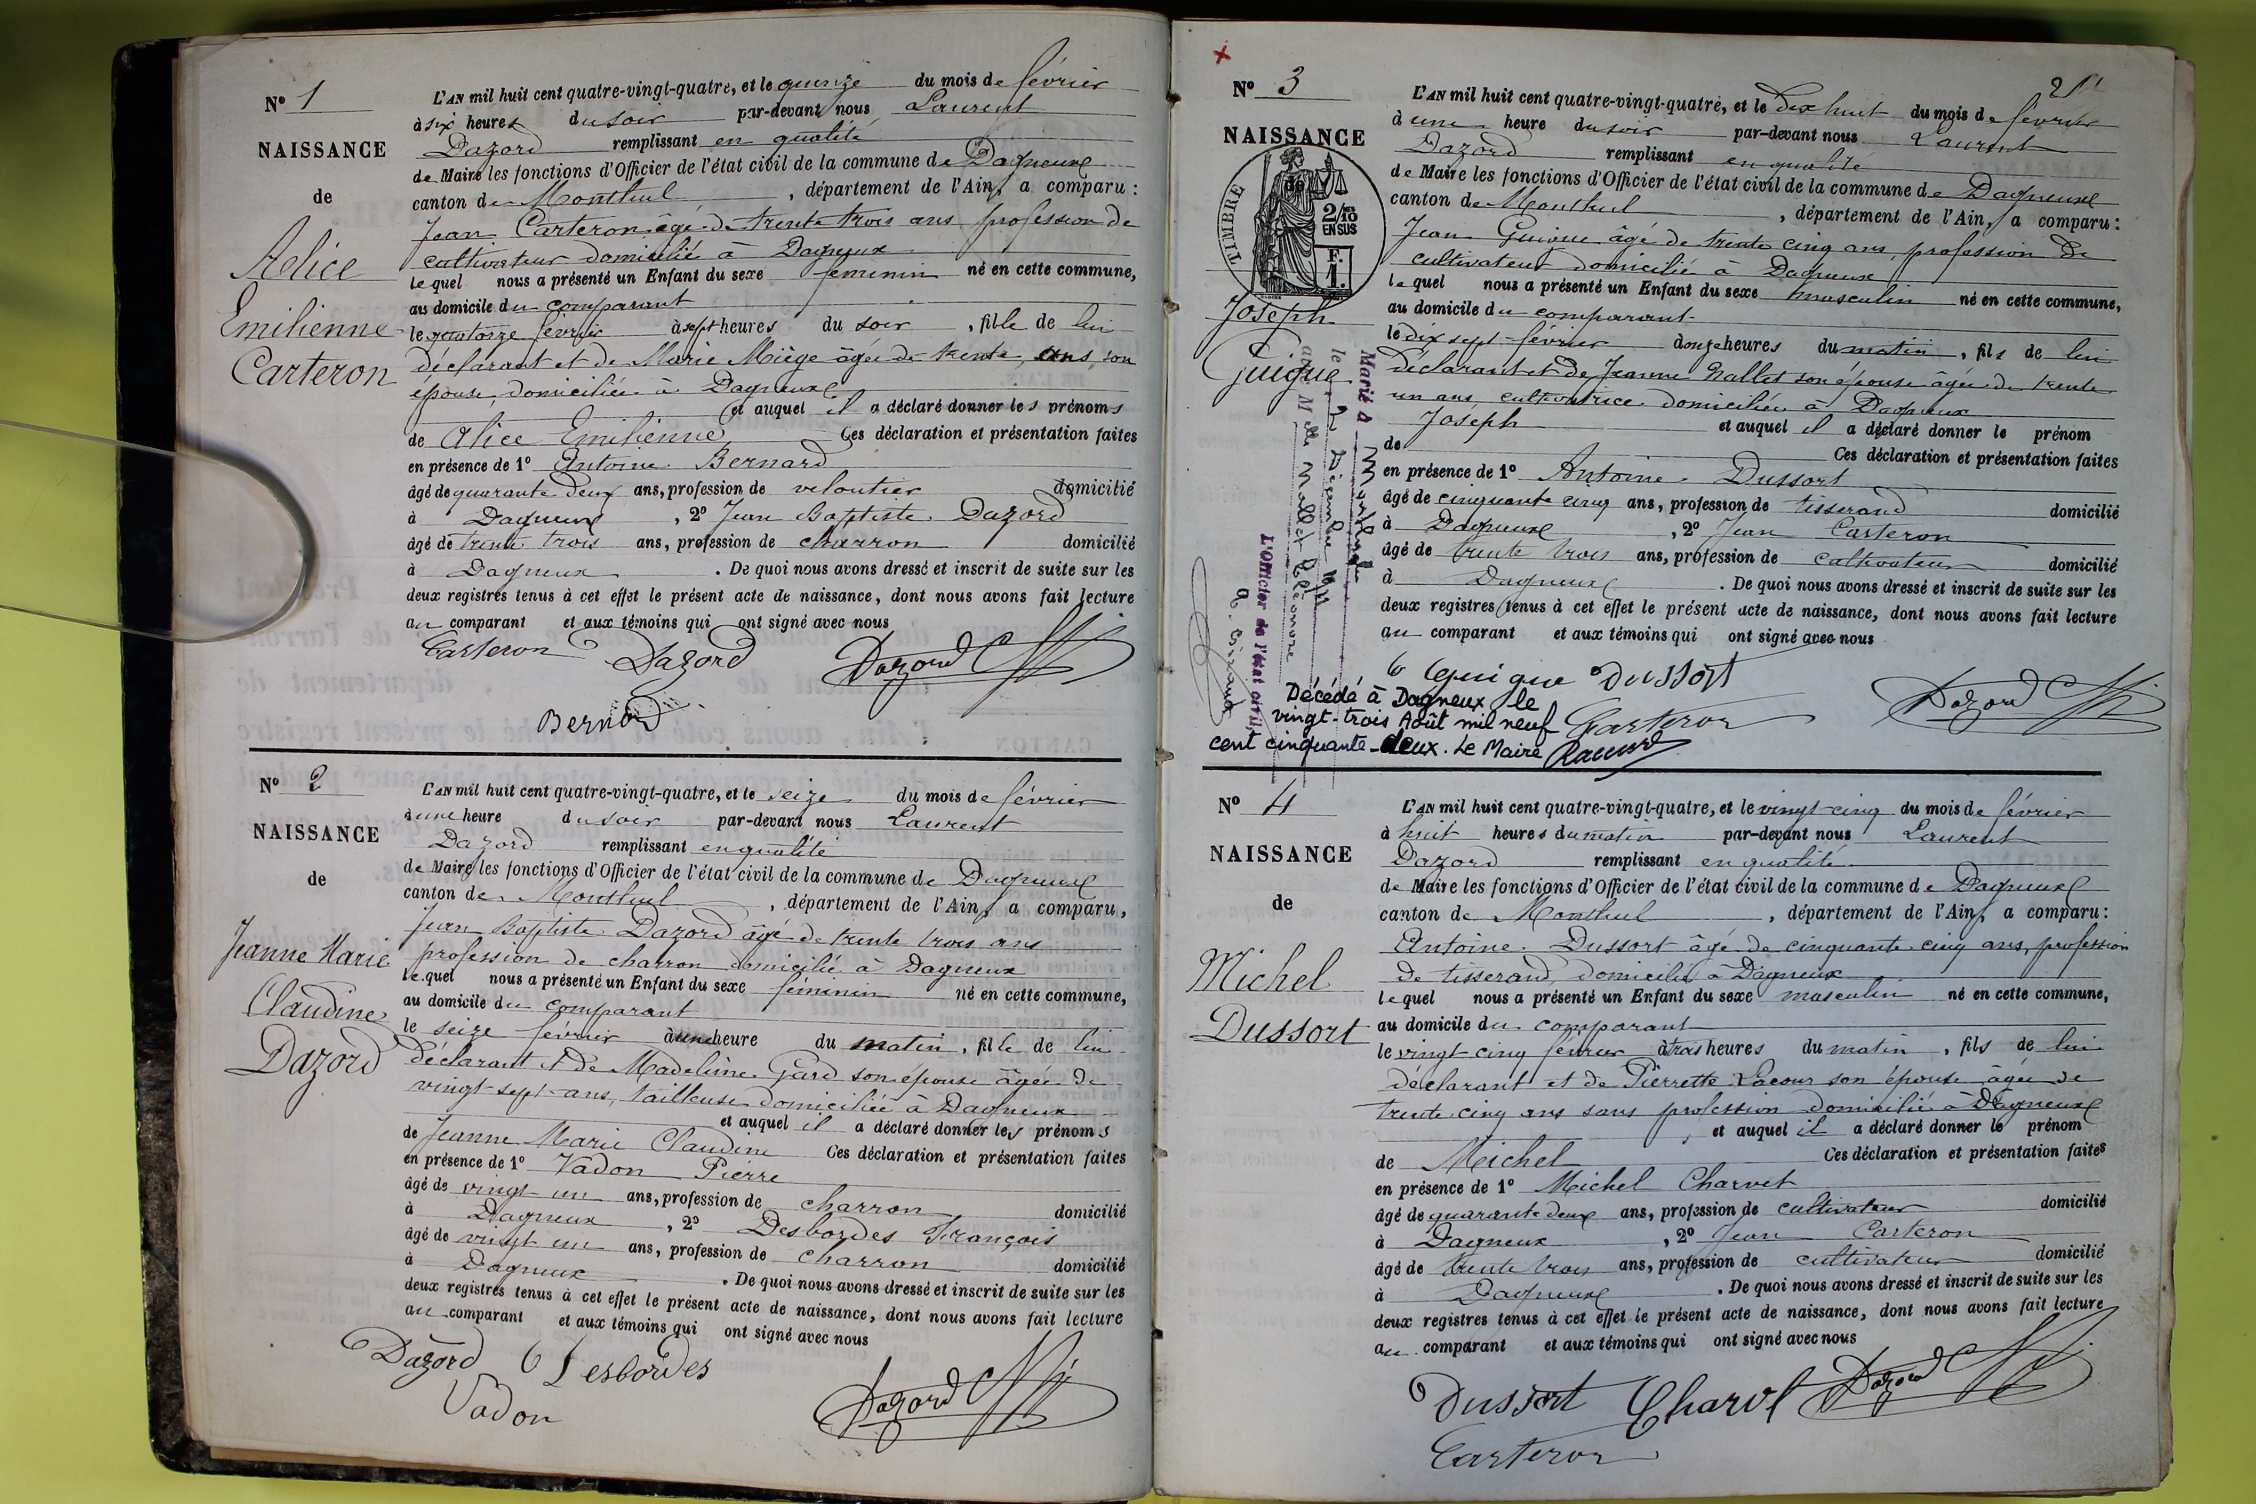 N° 1
NAISSANCE
de
Alice
Emilienne
Carteron
L'AN mil huit cent quatre-vingt-quatre, et le quinze du mois de février
à six heures du soir par-devant nous Laurent
Dazord remplissant en qualité
de Maire les fonctions d'Officier de l'état civil de la commune de Dagneux
canton de Montluel, département de l'Ain, a comparu :
Jean Carteron âgé de trente trois ans profession de
cultivateur domicilié à Dagneux
lequel nous a présenté un Enfant du sexe feminin né en cette commune,
au domicile du comparant
le quatorze février à sept heures du soir, fille de lui
déclarant et de Marie Miège âgée de trente ans, son
épouse, domiciliée à Dagneux
et auquel il a déclaré donner les prénoms
de Alice Emilienne Ces déclaration et présentation faites
en présence de 1° Antoine Bernard
âgé de quarante deux ans, profession de veloutier domicilié
à Dagneux, 2° Jean Baptiste Dazord
âgé de trente trois ans, profession de charron domicilié
à Dagneux. De quoi nous avons dressé et inscrit de suite sur les
deux registres tenus à cet effet le présent acte de naissance, dont nous avons fait lecture
au comparant et aux témoins qui ont signé avec nous
Carteron Dazord Dazord
Bernard
N° 2
NAISSANCE
de
Jeanne Marie
Claudine
Dazord
L'AN mil huit cent quatre-vingt-quatre, et le seize du mois de février
à une heure du soir par-devant nous Laurent
Dazord remplissant en qualité
de Maire les fonctions d'Officier de l'état civil de la commune de Dagneux
canton de Montluel, département de l'Ain, a comparu,
Jean Baptiste Dazord âgé de trente trois ans
profession de charron domicilié à Dagneux
lequel nous a présenté un Enfant du sexe féminin né en cette commune,
au domicile du comparant
le seize février à une heure du matin, fille de lui
déclarant et de Madeleine Gard son épouse âgée de
vingt-sept ans, tailleuse domiciliée à Dagneux
et auquel il a déclaré donner les prénoms
de Jeanne Marie Claudine Ces déclaration et présentation faites
en présence de 1° Vadon Pierre
âgé de vingt un ans, profession de charron domicilié
à Dagneux, 2° Desbordes François
âgé de vingt un ans, profession de charron domicilié
à Dagneux. De quoi nous avons dressé et inscrit de suite sur les
deux registres tenus à cet effet le présent acte de naissance, dont nous avons fait lecture
au comparant et aux témoins qui ont signé avec nous
Dazord Desbordes
Vadon Dazord
N° 3
NAISSANCE
de
TIMBRE
2/10 EN SUS
F. 1.
Joseph
Guigue
Marié à
le 2 Décembre
avec Melle Mallet Eléonore
L'Officier de l'état civil,
L'AN mil huit cent quatre-vingt-quatre, et le dix huit du mois de février
à une heure du soir par-devant nous Laurent
Dazord remplissant en qualité
de Maire les fonctions d'Officier de l'état civil de la commune de Dagneux
canton de Montluel, département de l'Ain, a comparu :
Jean Guigue âgé de trente cinq ans, profession de
cultivateur domicilié à Dagneux
lequel nous a présenté un Enfant du sexe masculin né en cette commune,
au domicile du comparant
le dix sept février à onze heures du matin, fils de lui
déclarant et de Jeanne Nallet son épouse âgée de trente
un ans, cultivatrice domiciliée à Dagneux
et auquel il a déclaré donner le prénom
de Joseph Ces déclaration et présentation faites
en présence de 1° Antoine Dussort
âgé de cinquante cinq ans, profession de tisserand domicilié
à Dagneux, 2° Jean Carteron
âgé de trente trois ans, profession de cultivateur domicilié
à Dagneux. De quoi nous avons dressé et inscrit de suite sur les
deux registres tenus à cet effet le présent acte de naissance, dont nous avons fait lecture
au comparant et aux témoins qui ont signé avec nous
Guigue Dussort
Carteron Dazord
Décédé à Dagneux le
vingt-trois Août mil neuf
cent cinquante-deux. Le Maire
N° 4
NAISSANCE
de
Michel
Dussort
L'AN mil huit cent quatre-vingt-quatre, et le vingt-cinq du mois de février
à huit heures du matin par-devant nous Laurent
Dazord remplissant en qualité
de Maire les fonctions d'Officier de l'état civil de la commune de Dagneux
canton de Montluel, département de l'Ain, a comparu :
Antoine Dussort âgé de cinquante cinq ans, profession
de tisserand, domicilié à Dagneux
lequel nous a présenté un Enfant du sexe masculin né en cette commune,
au domicile du comparant
le vingt cinq février à trois heures du matin, fils de lui
déclarant et de Pierrette Lacour son épouse âgée de
trente cinq ans sans profession domicilié à Dagneux
et auquel il a déclaré donner le prénom
de Michel Ces déclaration et présentation faites
en présence de 1° Michel Charvet
âgé de quarante deux ans, profession de cultivateur domicilié
à Dagneux, 2° Jean Carteron
âgé de trente trois ans, profession de cultivateur domicilié
à Dagneux. De quoi nous avons dressé et inscrit de suite sur les
deux registres tenus à cet effet le présent acte de naissance, dont nous avons fait lecture
au comparant et aux témoins qui ont signé avec nous
Dussort Charvet Dazord
Carteron